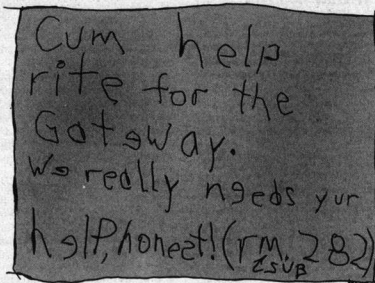 Cum help
rite for the
Gateway.
We really needs yur
help, honest! (rm. 282)
ESUB